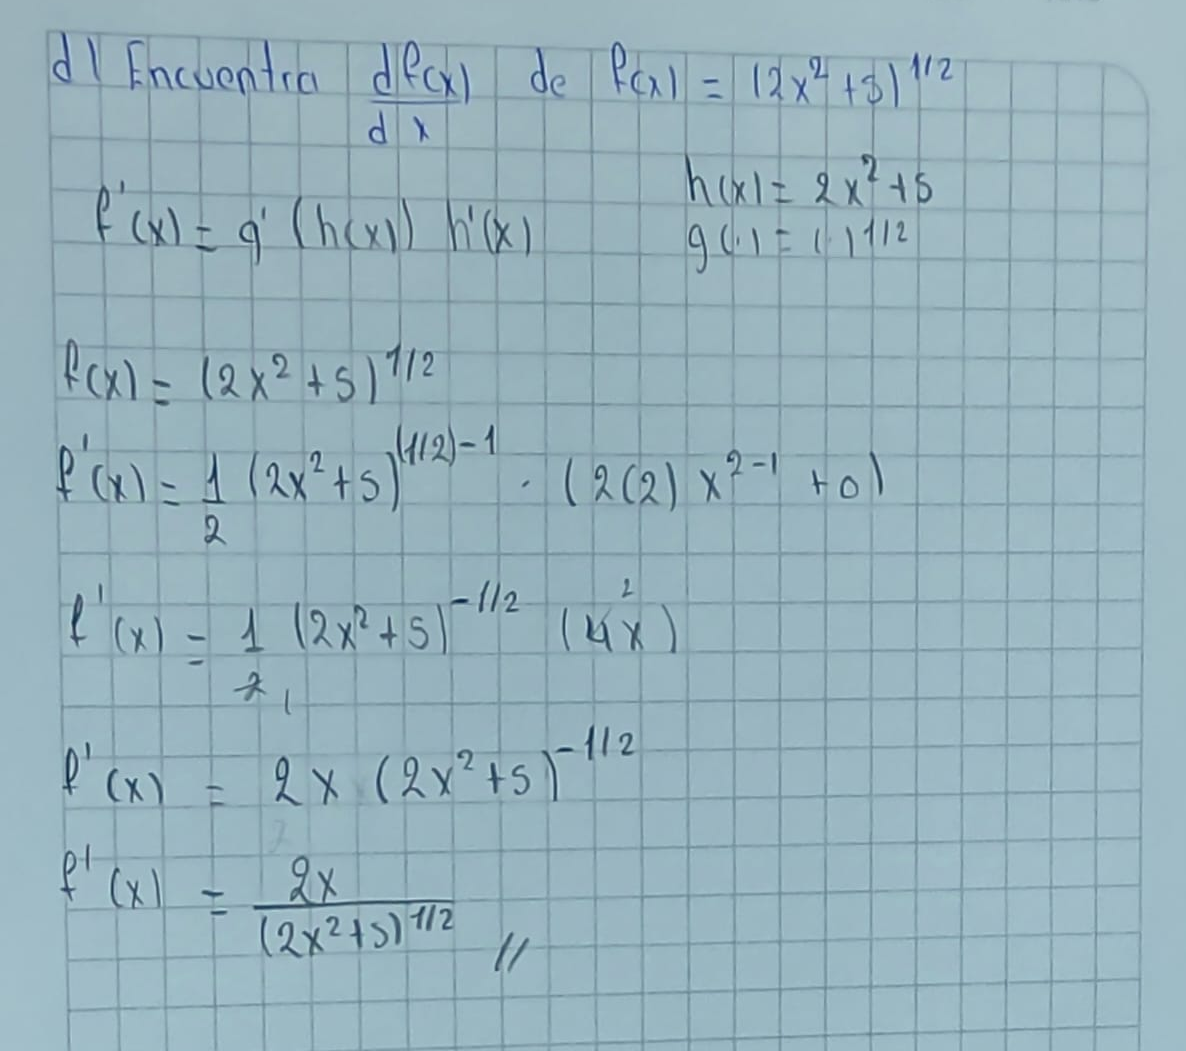 d) Encuentra df(x)/dx de f(x) = (2x² + 5)^1/2
h(x) = 2x² + 5
f'(x) = g' (h(x)) h'(x)
g(·) = (·)^1/2
f(x) = (2x² + 5)^1/2
f'(x) = 1/2 (2x² + 5)^(1/2)-1 · (2(2) x^2-1 + 0)
f'(x) = 1/2 (2x² + 5)^-1/2 (4x)
f'(x) = 2x (2x² + 5)^-1/2
f'(x) = 2x/(2x² + 5)^1/2 //